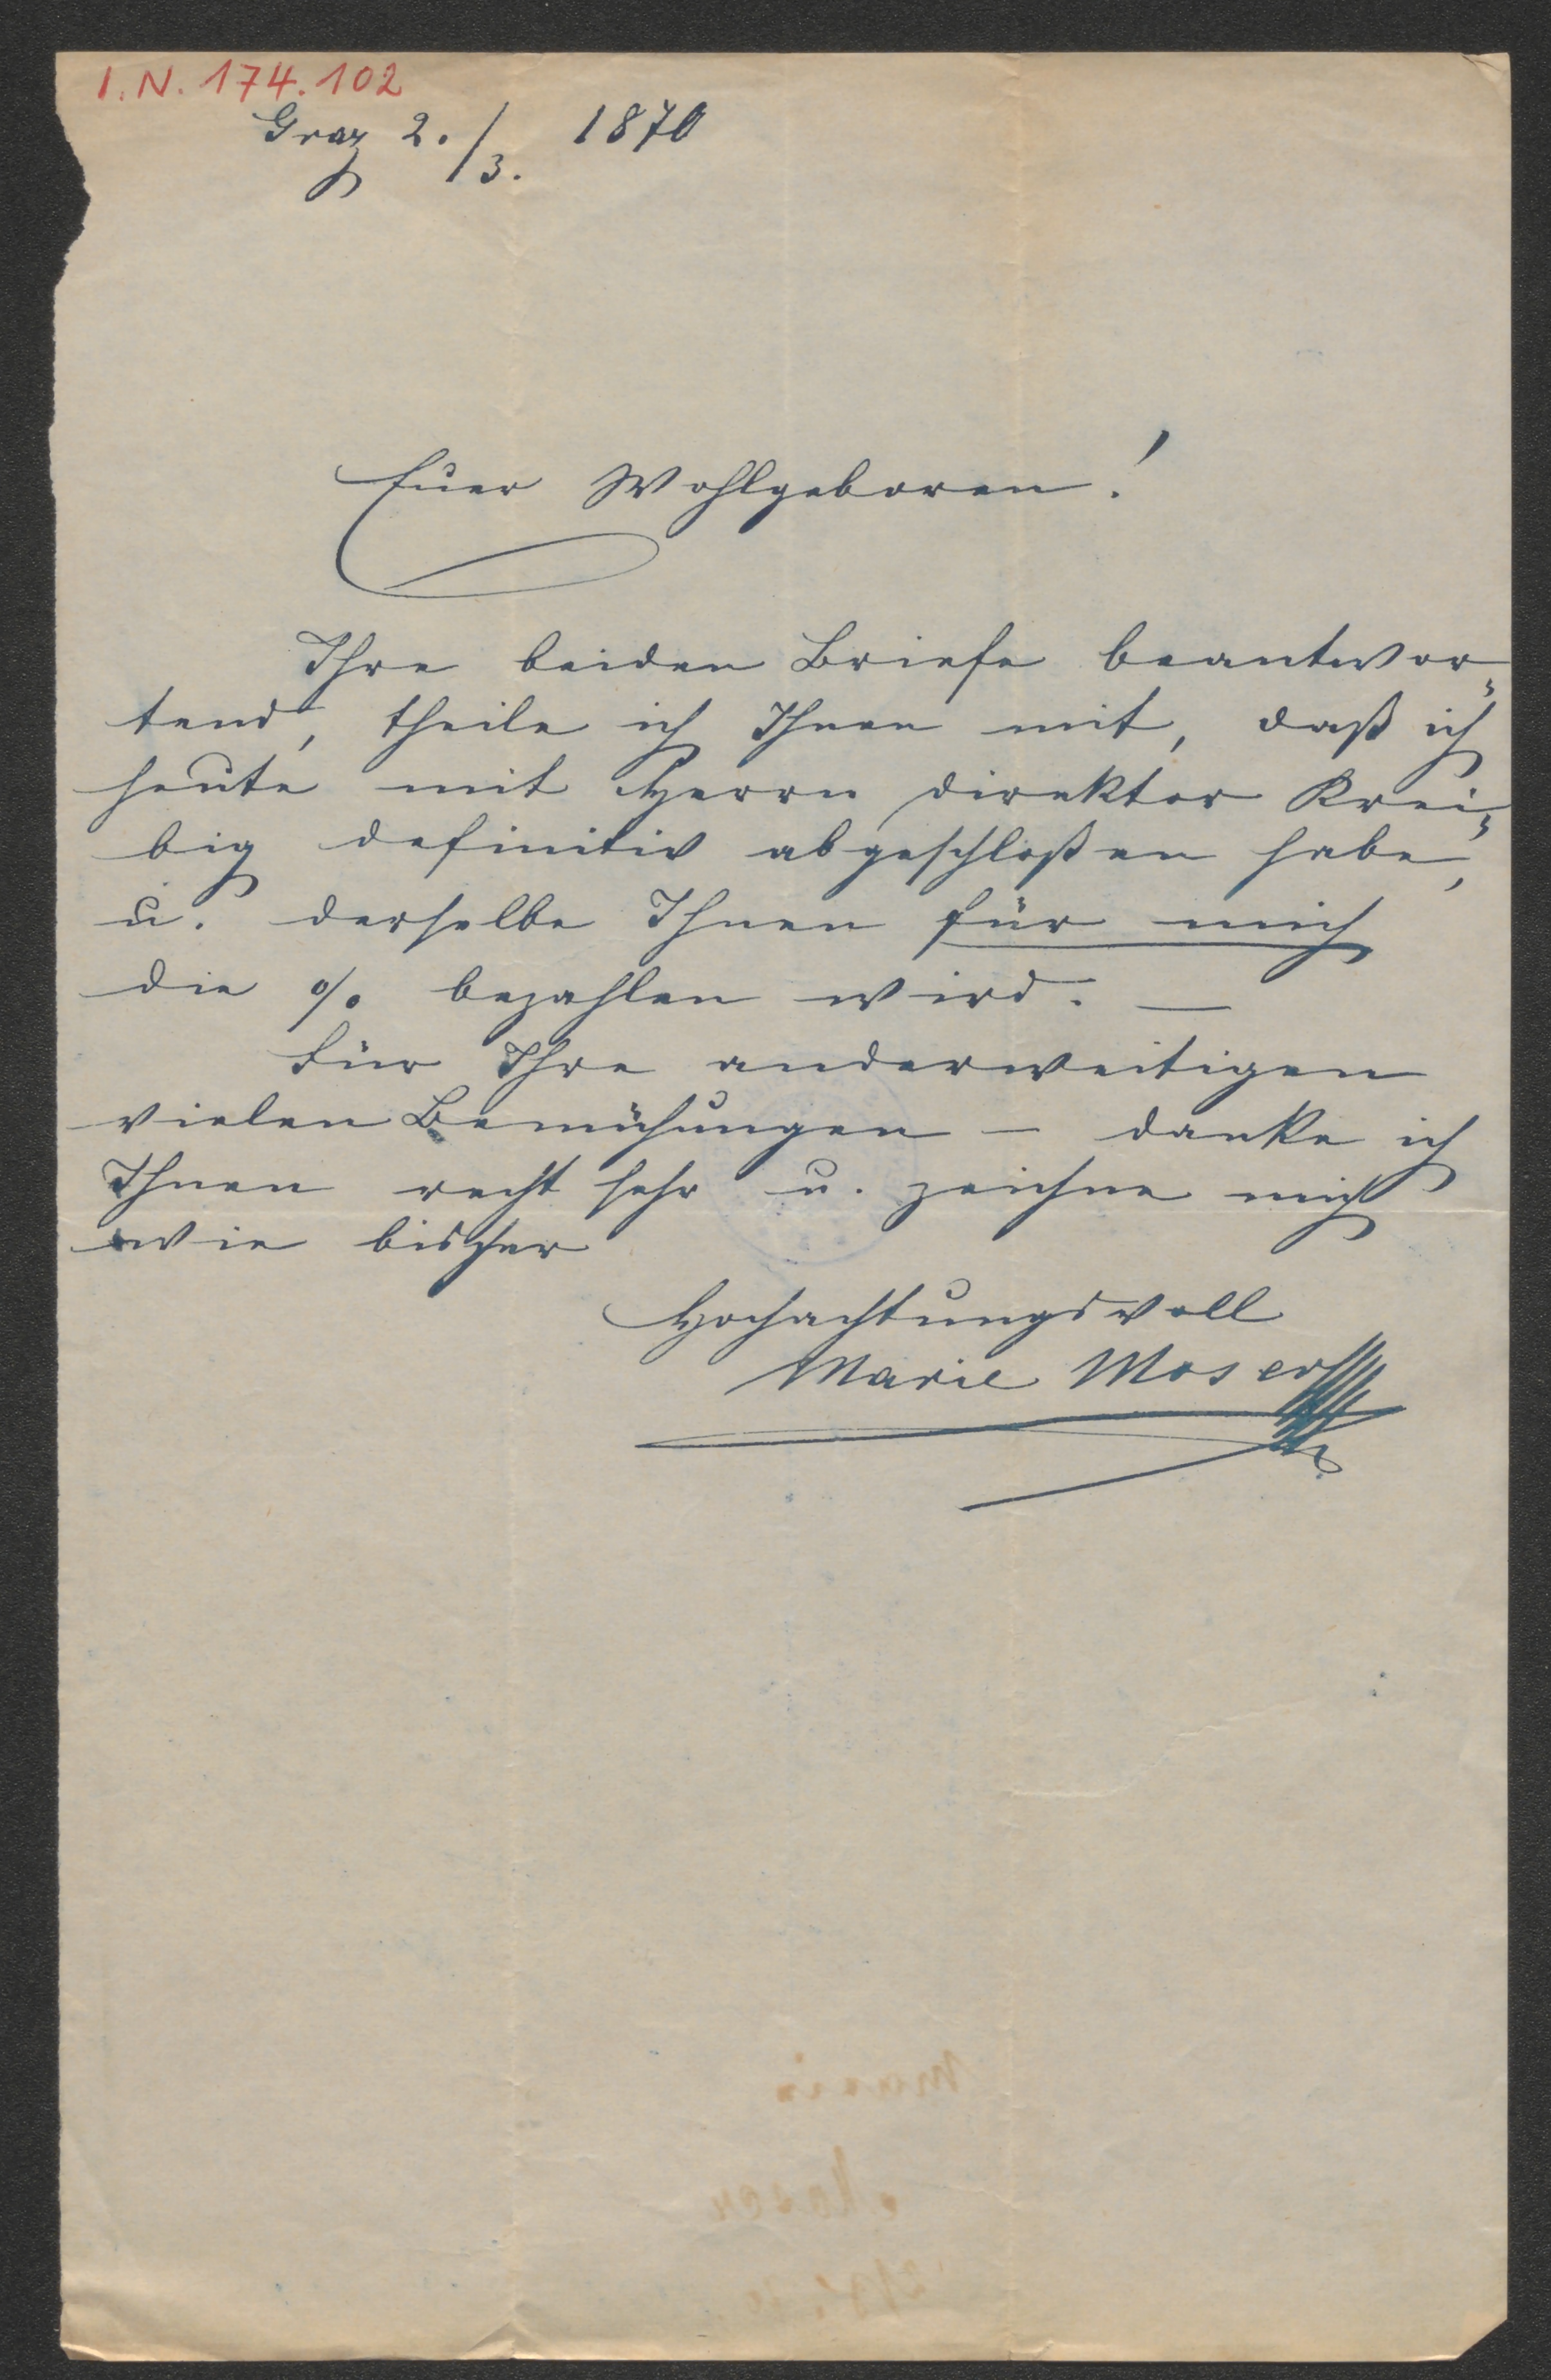 I.N. 174.102
Graz 2./3. 1870
Euer Wohlgeboren!
Ihre beiden Briefe beantwor-
tend, theile ich Ihnen mit, daß ich
heute mit Herrn Direktor Krei-
big definitiv abgeschloßen habe,
u. derselbe Ihnen für mich
die % bezahlen wird. —
Für Ihre anderweitigen
vielen Bemühungen – danke ich
Ihnen recht sehr u. zeichne mich
wie bisher
Hochachtungsvoll
Marie Moser